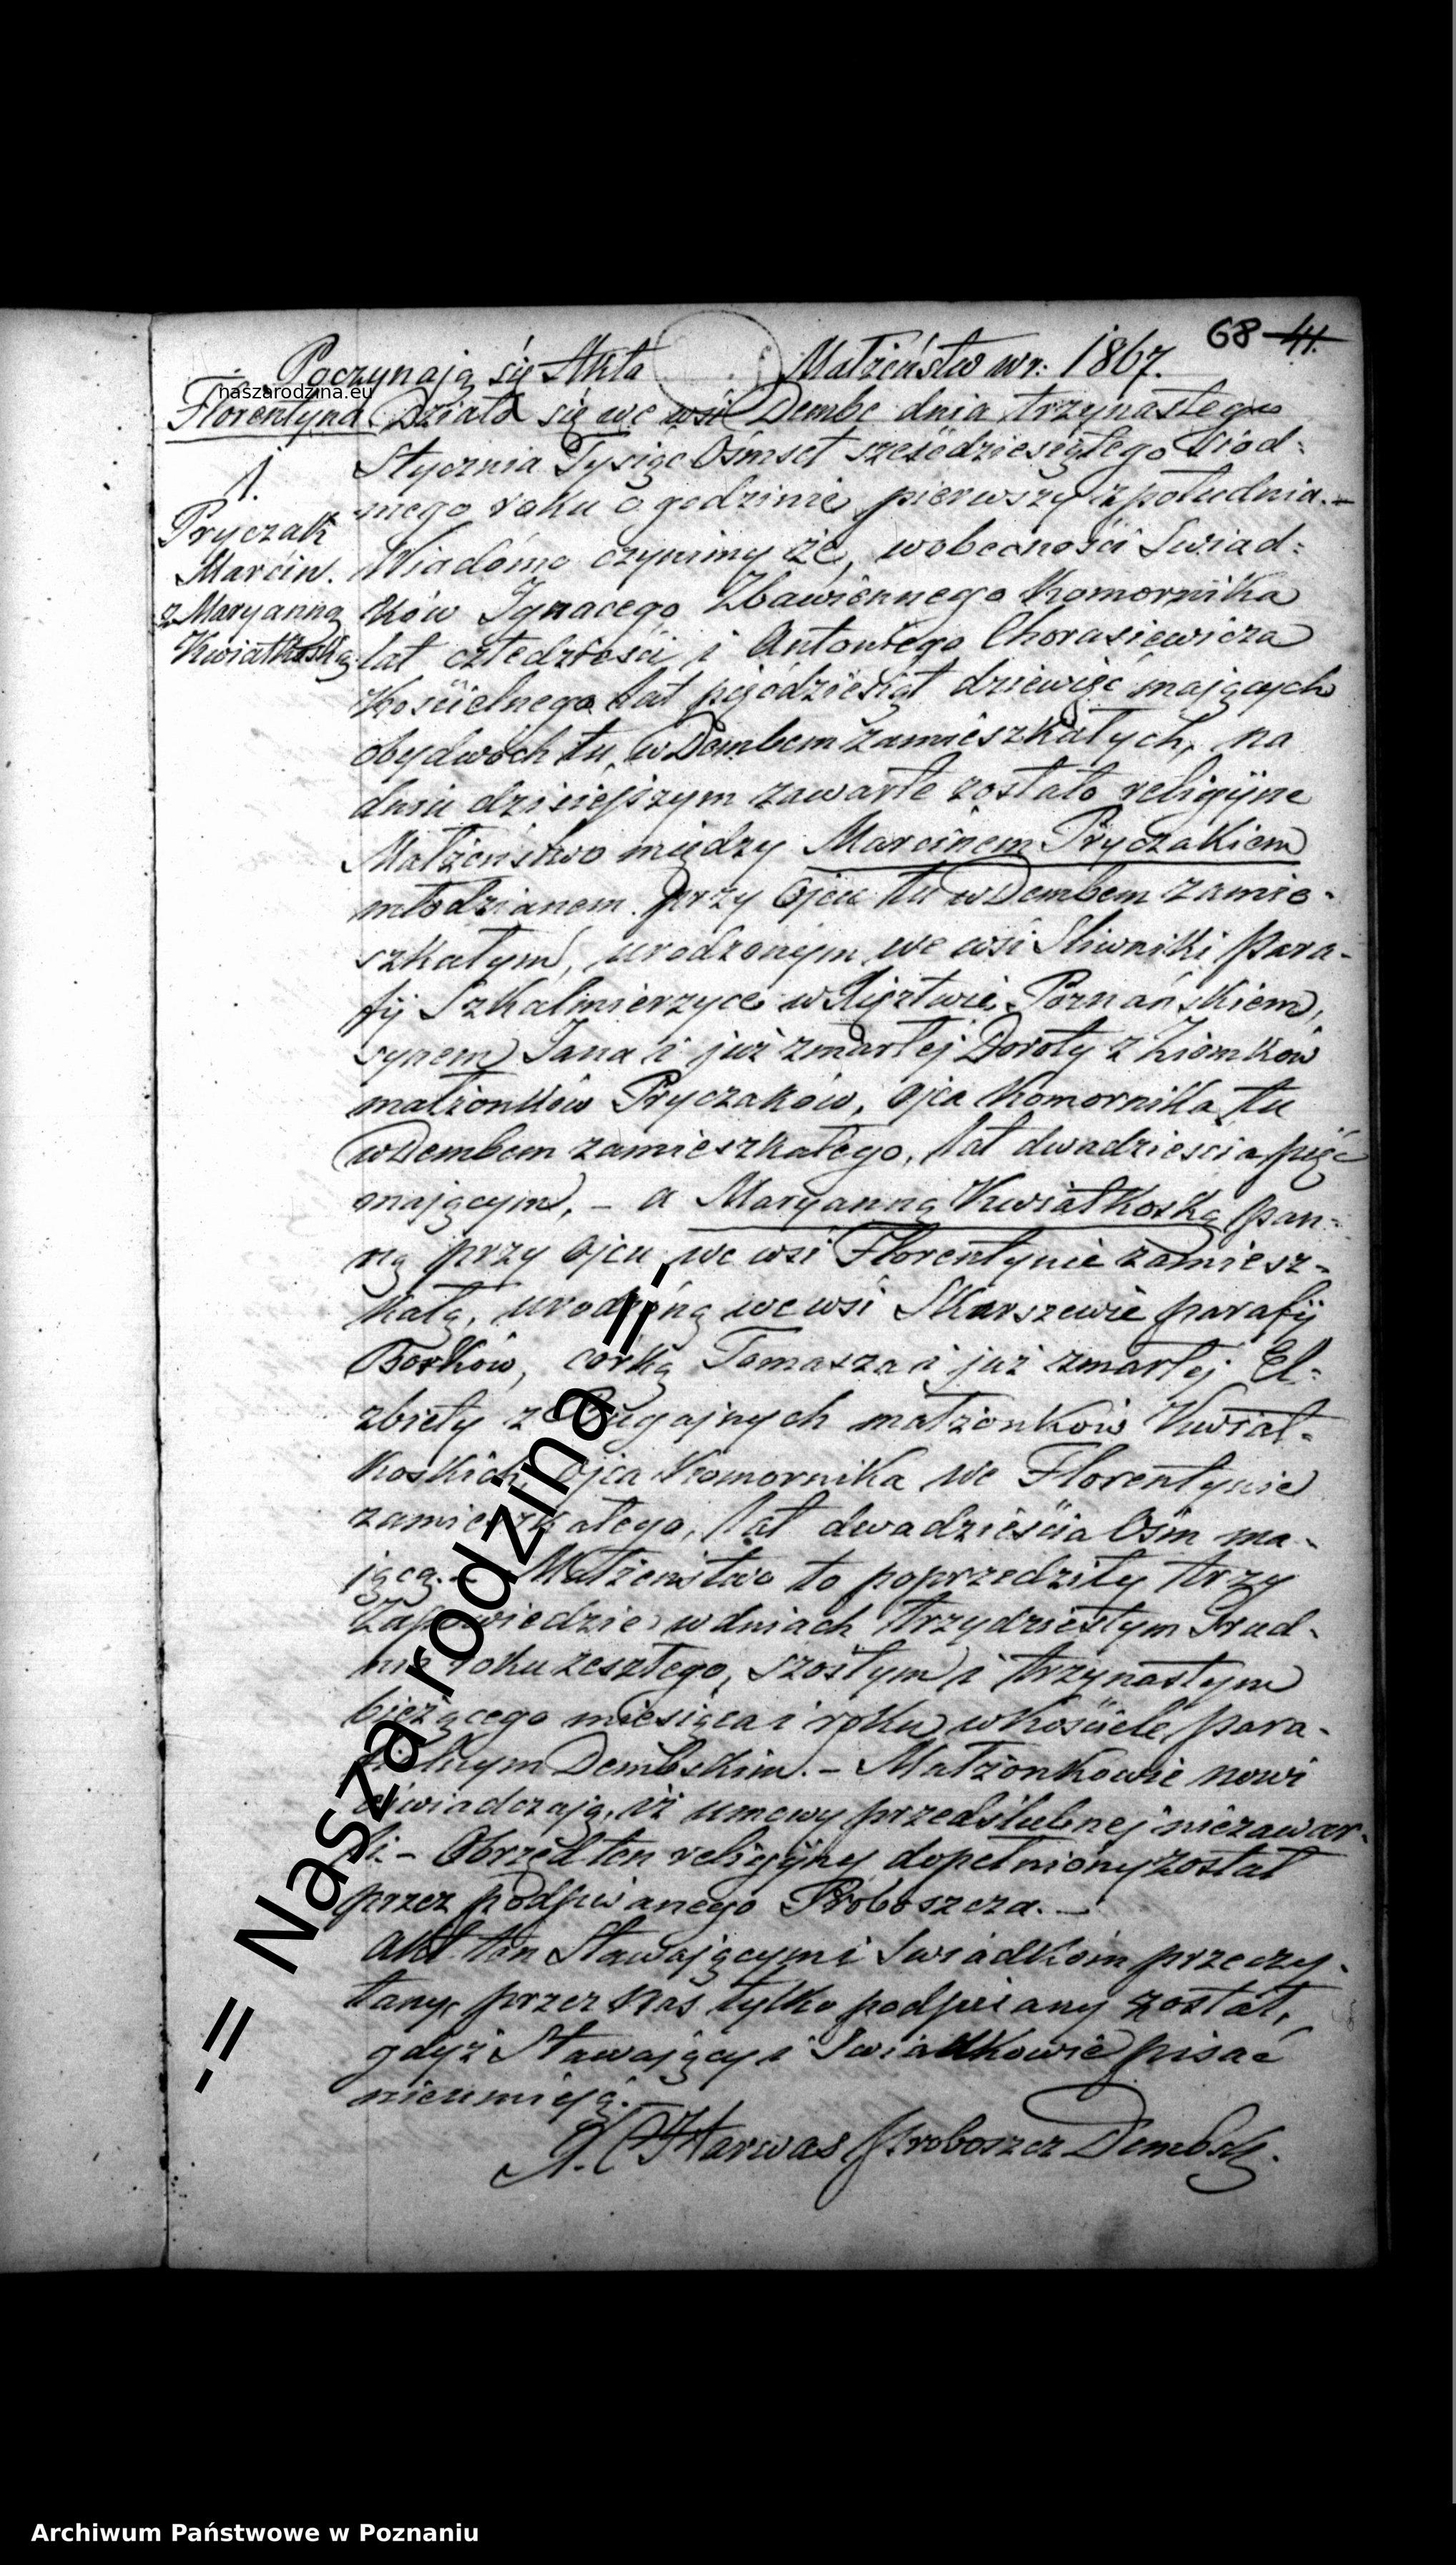 68 41.
Poczynają się Akta Małżeństw w r: 1867.
naszarodzina.eu
Florentyna
1.
Pryczak
Marcin.
z Maryanną
Kwiatkoską
Działo się we wsi Dembe dnia trzynastego
Stycznia Tysiąc Ośmset sześćdziesiątego Siod:
mego roku o godzinie pierwszy z południa. –
Wiadomo czyniemy że, wobecności Swiad:
ków Ignacego Zbawiennego Komornika
lat czterdzieści i Antoniego Chorasiewicza
Kościelnego lat pięćdziesiąt dziewięć mających
obydwóch tu w Dembem zamieszkałych, na
dniu dzisiejszym zawarte zostało religijne
Małżeństwo między Marcinem Pryczakiem
młodzianem przy Ojcu tu w Dembem zamie-
szkałym, urodzonym we wsi Sliwniki para-
fij Szkalmierzyce w Xięztwie Poznańskiem,
synem Jana i już zmarłej Doroty z Ziomków
małżonków Pryczaków, Ojca Komornika tu
w Dembem zamieszkałego, lat dwadzieścia pięć
mającym, – a Maryanną Kwiatkoską pan:
ną przy Ojcu we wsi Florentynie zamiesz-
kałą, urodzoną we wsi Skarszewie parafij
Borków, córką Tomasza i już zmarłej El-
zbiety z małżonków Kwiat-
koskich, Ojca Komornika we Florentynie
zamieszkałego, lat dwadzieścia Ośm ma-
jącą. – Małżeństwo to poprzedziły trzy
Zapowiedzie w dniach trzydziestym Grud-
nia roku zeszłego, szóstym i trzynastym
bieżącego miesiąca i roku w kościele para-
fialnym Dembskim. – Małżonkowie nowi
oświadczają, iż umowy przedślubnej niezawar-
li. – Obrzęd ten religijny dopełniony został
przez podpisanego Proboszcza. –
Akt ten Stawającymi Swiadkom przeczy-
tany, przez Nas tylko podpisany został,
gdyż Stawający i Swiadkowie pisać
nieumieją.
X. Harwas Proboszcz Dembsk.
-= Nasza rodzina =-
Archiwum Państwowe w Poznaniu